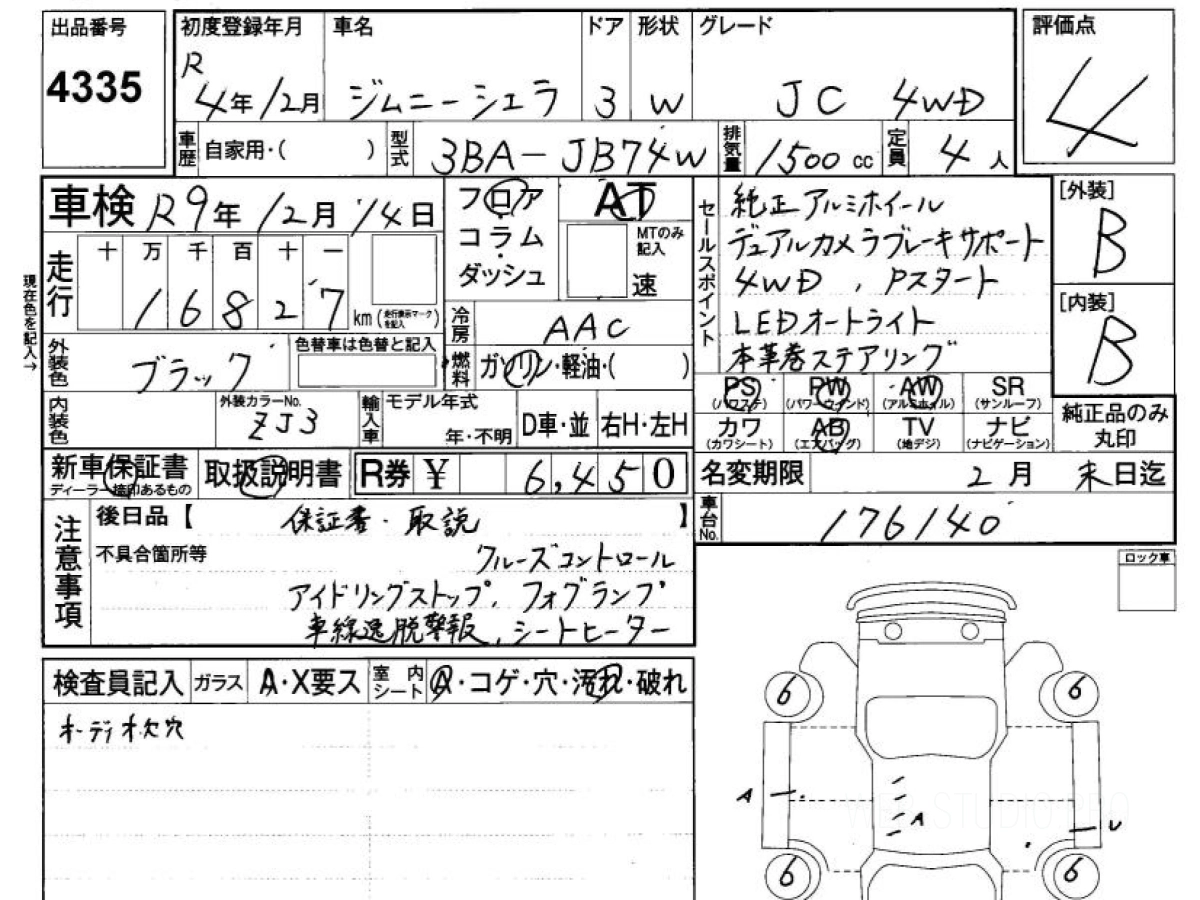 出品番号
4335
初度登録年月 車名 ドア 形状 グレード
R
4年12月 ジムニーシエラ 3 W JC 4WD
車歴 自家用・( ) 型式 3BA-JB74W 排気量 1500 cc 定員 4 人
評価点
4
車検 R9年12月14日
現在色を記入→
走行 十 万 千 百 十 一
16827 km (走行表示マークを記入)
フロア
コラム
ダッシュ
AT
MTのみ記入
速
冷房 AAC
燃料 ガソリン・軽油・( )
外装色 ブラック
色替車は色替と記入
内装色
外装カラーNo.
ZJ3
輸入車 モデル年式
年・不明 D車・並 右H・左H
新車保証書
ディーラー捺印あるもの
取扱説明書 R券 ¥ 6,450
セールスポイント
純正アルミホイール
デュアルカメラブレーキサポート
4WD , Pスタート
LEDオートライト
本革巻ステアリング
PS (パワステ) PW (パワーウインド) AW (アルミホイル) SR (サンルーフ)
カワ (カワシート) AB (エアバッグ) TV (地デジ) ナビ (ナビゲーション)
[外装]
B
[内装]
B
純正品のみ
丸印
名変期限 2月 末日迄
車台No. 176140
注意事項
後日品【 保証書・取説 】
不具合箇所等
クルーズコントロール
アイドリングストップ, フォグランプ
車線逸脱警報, シートヒーター
検査員記入 ガラス A・X要ス 室内シート A・コゲ・穴・汚れ・破れ
オーディオ欠穴
ロック車
6 6
A A U
6 6
WEB STUDIO PRO